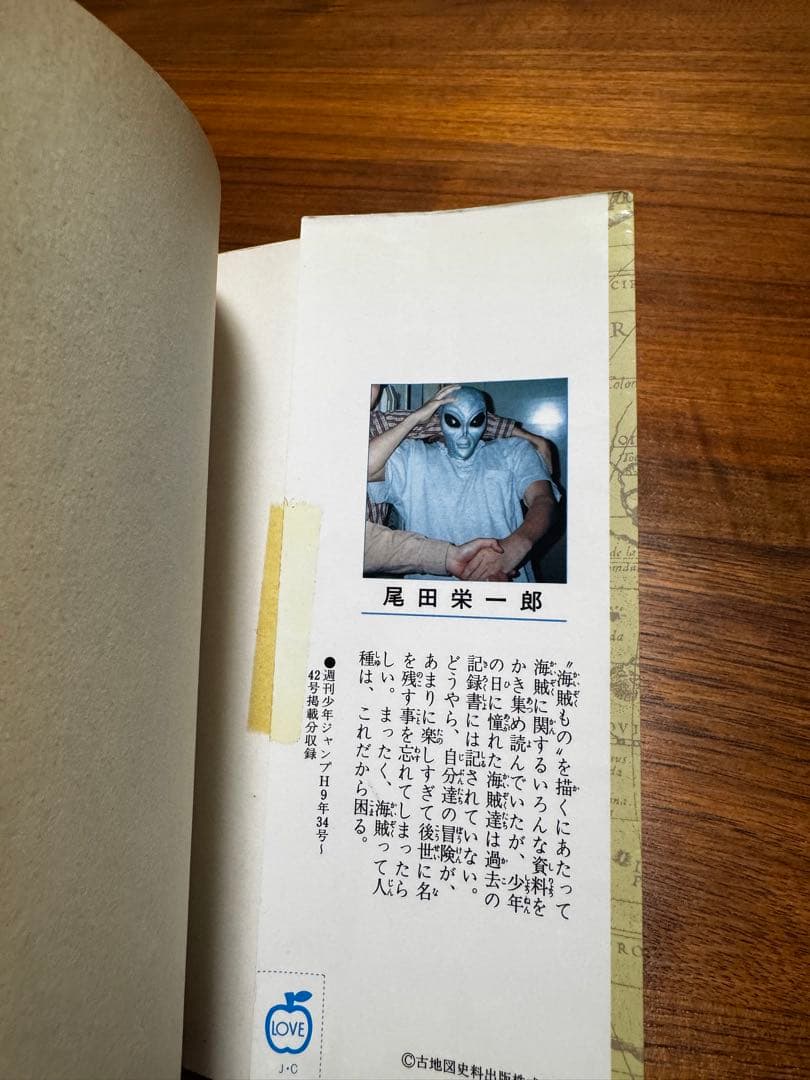 尾田栄一郎
“海賊もの”を描くにあたって
海賊に関するいろんな資料を
かき集め読んでいたが、少年
の日に憧れた海賊達は過去の
記録書には記されていない。
どうやら、自分達の冒険が、
あまりに楽しすぎて後世に名
を残す事を忘れてしまったら
しい。まったく、海賊って人
種は、これだから困る。
●週刊少年ジャンプH9年34号〜
42号掲載分収録
LOVE
J・C
©古地図史料出版株